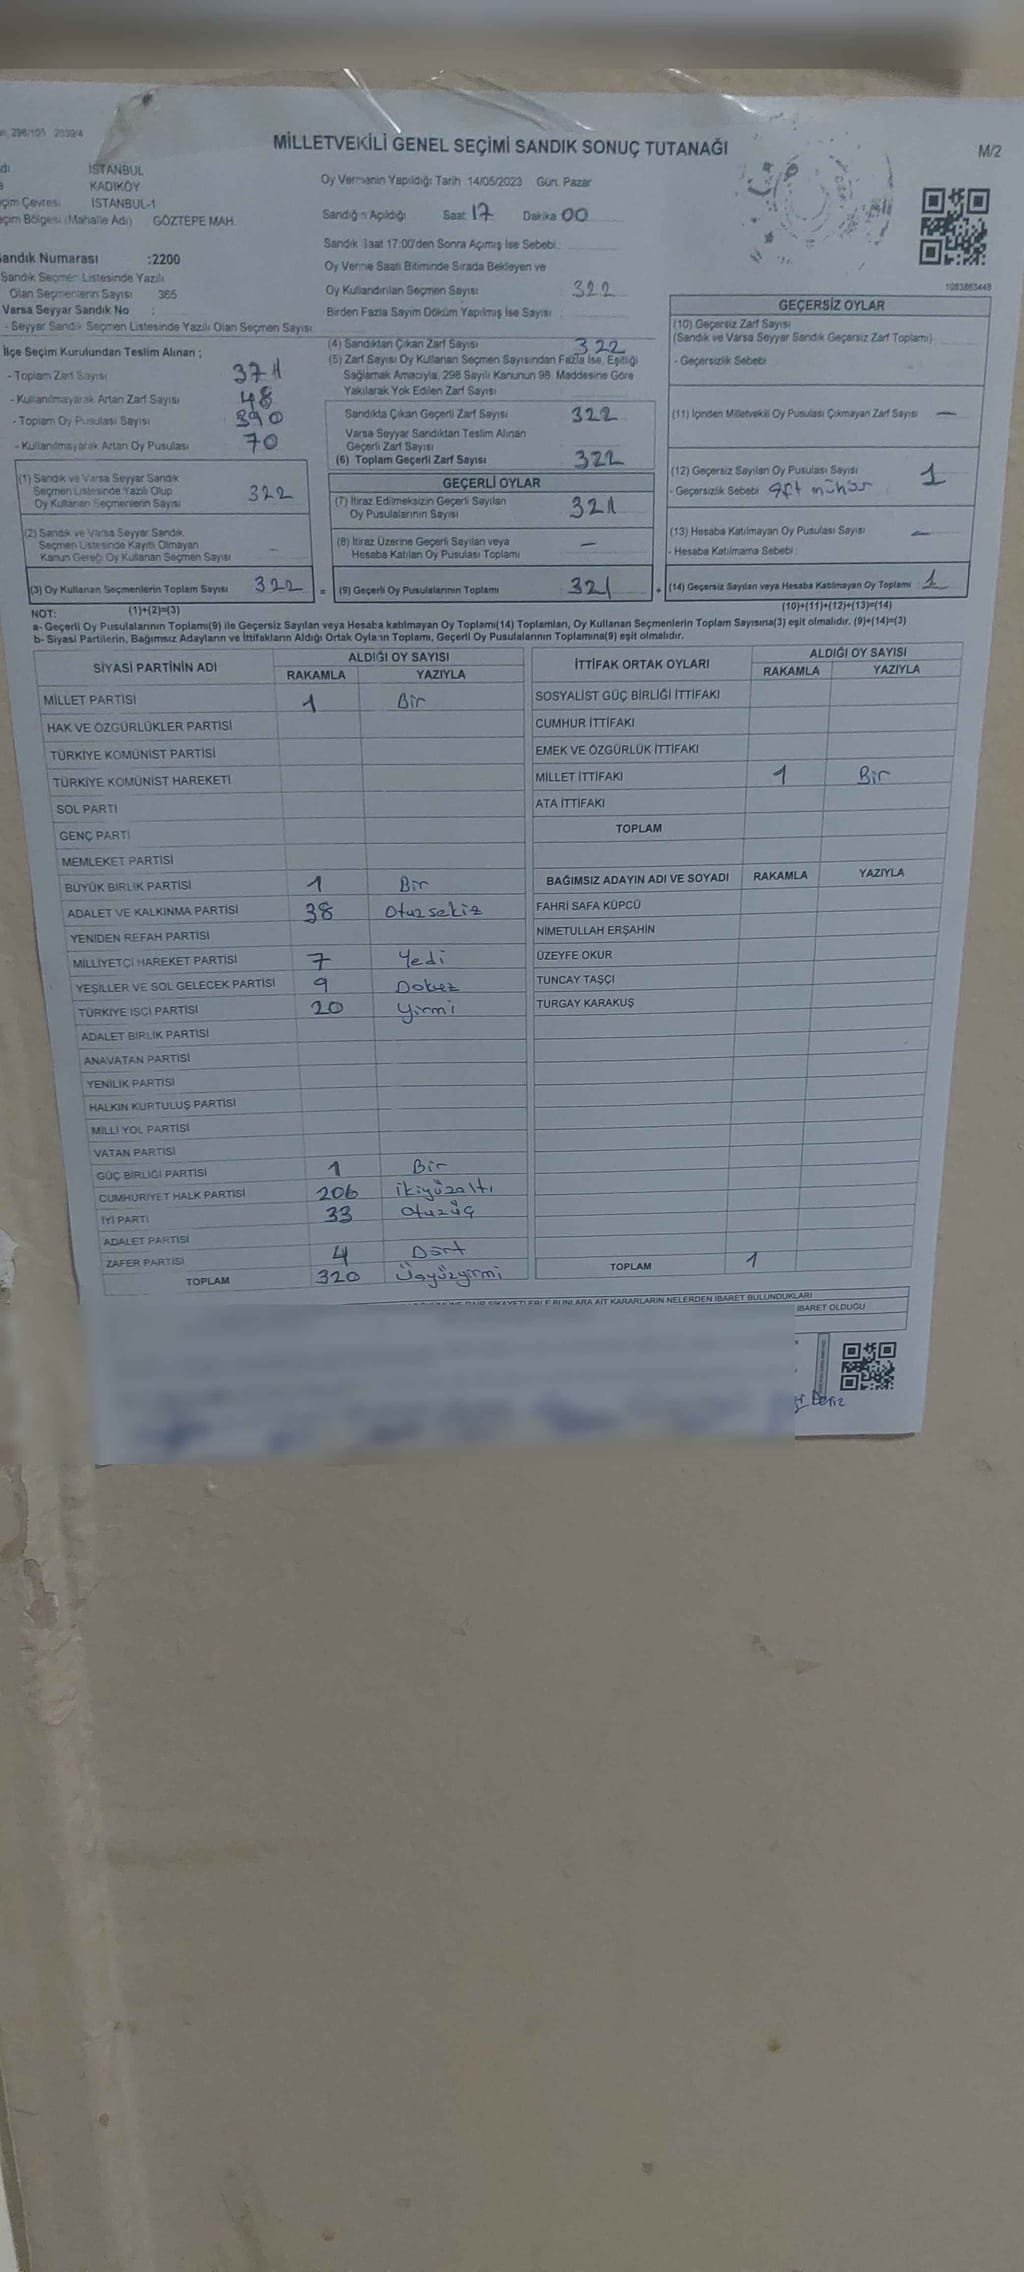 298/101
MİLLETVEKİLİ GENEL SEÇİMİ SANDIK SONUÇ TUTANAĞI
M/2
İSTANBUL
KADIKÖY
çim Çevresi İSTANBUL-1
çim Bölgesi (Mahalle Adı) GÖZTEPE MAH.
Oy Vermenin Yapıldığı Tarih :14/05/2023 Gün: Pazar
Sandığın Açıldığı Saat 17 Dakika 00
Sandık Saat 17:00'den Sonra Açımış İse Sebebi
Oy Verme Saati Bitiminde Sırada Bekleyen ve
Oy Kullandırılan Seçmen Sayısı 322
Birden Fazla Sayım Döküm Yapılmış İse Sayısı
andık Numarası :2200
Sandık Seçmen Listesinde Yazılı
Olan Seçmenlerin Sayısı 365
Varsa Seyyar Sandık No :
- Seyyar Sandık Seçmen Listesinde Yazılı Olan Seçmen Sayısı
İlçe Seçim Kurulundan Teslim Alınan ;
- Toplam Zarf Sayısı
- Kullanılmayarak Artan Zarf Sayısı 48
- Toplam Oy Pusulası Sayısı 390
- Kullanılmayarak Artan Oy Pusulası 70
(1) Sandık ve Varsa Seyyar Sandık
Seçmen Listesinde Yazılı Olup
Oy Kullanan Seçmenlerin Sayısı 322
(2) Sandık ve Varsa Seyyar Sandık
Seçmen Listesinde Kayıtlı Olmayan
Kanun Gereği Oy Kullanan Seçmen Sayısı -
(3) Oy Kullanan Seçmenlerin Toplam Sayısı 322
(4) Sandıktan Çıkan Zarf Sayısı 322
(5) Zarf Sayısı Oy Kullanan Seçmen Sayısından Fazla İse, Eşitliği
Sağlamak Amacıyla, 298 Sayılı Kanunun 98. Maddesine Göre
Yakılarak Yok Edilen Zarf Sayısı
Sandıkta Çıkan Geçerli Zarf Sayısı 322
Varsa Seyyar Sandıktan Teslim Alınan
Geçerli Zarf Sayısı
(6) Toplam Geçerli Zarf Sayısı 322
GEÇERLİ OYLAR
(7) İtiraz Edilmeksizin Geçerli Sayılan
Oy Pusulalarının Sayısı 321
(8) İtiraz Üzerine Geçerli Sayılan veya
Hesaba Katılan Oy Pusulası Toplamı —
= (9) Geçerli Oy Pusulalarının Toplamı 321 +
1083863448
GEÇERSİZ OYLAR
(10) Geçersiz Zarf Sayısı
(Sandık ve Varsa Seyyar Sandık Geçersiz Zarf Toplamı)
- Geçersizlik Sebebi
(11) İçinden Milletvekili Oy Pusulası Çıkmayan Zarf Sayısı —
(12) Geçersiz Sayılan Oy Pusulası Sayısı 1
- Geçersizlik Sebebi Çift mühür
(13) Hesaba Katılmayan Oy Pusulası Sayısı —
- Hesaba Katılmama Sebebi
(14) Geçersiz Sayılan veya Hesaba Katılmayan Oy Toplamı 1
NOT: (1)+(2)=(3) (10)+(11)+(12)+(13)=(14)
a- Geçerli Oy Pusulalarının Toplamı(9) ile Geçersiz Sayılan veya Hesaba katılmayan Oy Toplamı(14) Toplamları, Oy Kullanan Seçmenlerin Toplam Sayısına(3) eşit olmalıdır. (9)+(14)=(3)
b- Siyasi Partilerin, Bağımsız Adayların ve İttifakların Aldığı Ortak Oyların Toplamı, Geçerli Oy Pusulalarının Toplamına(9) eşit olmalıdır.
SİYASİ PARTİNİN ADI ALDIĞI OY SAYISI
RAKAMLA YAZIYLA
MİLLET PARTİSİ 1 Bir
HAK VE ÖZGÜRLÜKLER PARTİSİ
TÜRKİYE KOMÜNİST PARTİSİ
TÜRKİYE KOMÜNİST HAREKETİ
SOL PARTİ
GENÇ PARTİ
MEMLEKET PARTİSİ
BÜYÜK BİRLİK PARTİSİ 1 Bir
ADALET VE KALKINMA PARTİSİ 38 Otuzsekiz
YENİDEN REFAH PARTİSİ
MİLLİYETÇİ HAREKET PARTİSİ 7 Yedi
YEŞİLLER VE SOL GELECEK PARTİSİ 9 Dokuz
TÜRKİYE İŞÇİ PARTİSİ 20 Yirmi
ADALET BİRLİK PARTİSİ
ANAVATAN PARTİSİ
YENİLİK PARTİSİ
HALKIN KURTULUŞ PARTİSİ
MİLLİ YOL PARTİSİ
VATAN PARTİSİ
GÜÇ BİRLİĞİ PARTİSİ 1 Bir
CUMHURİYET HALK PARTİSİ 206 ikiyüzaltı
İYİ PARTİ 33 otuzüç
ADALET PARTİSİ
ZAFER PARTİSİ 4 Dört
TOPLAM 320 Üçyüzyirmi
İTTİFAK ORTAK OYLARI ALDIĞI OY SAYISI
RAKAMLA YAZIYLA
SOSYALİST GÜÇ BİRLİĞİ İTTİFAKI
CUMHUR İTTİFAKI
EMEK VE ÖZGÜRLÜK İTTİFAKI
MİLLET İTTİFAKI 1 Bir
ATA İTTİFAKI
TOPLAM
BAĞIMSIZ ADAYIN ADI VE SOYADI RAKAMLA YAZIYLA
FAHRİ SAFA KÜPCÜ
NİMETULLAH ERŞAHİN
ÜZEYFE OKUR
TUNCAY TAŞÇI
TURGAY KARAKUŞ
TOPLAM 1
ŞİKAYETLERLE BUNLARA AİT KARARLARIN NELERDEN İBARET BULUNDUKLARI
İBARET OLDUĞU